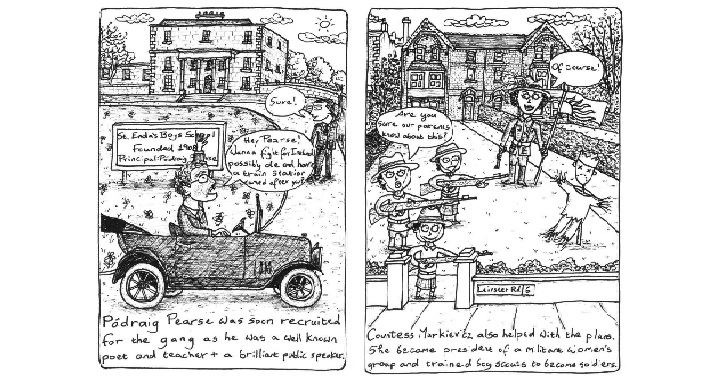 Sure!
St. Enda's Boys School
Founded 190
Principal: Pádraig Pearse
Hey, Pearse!
Wanna fight for Ireland
possibly die and have
a train station
named after you?
Pádraig Pearse was soon recruited
for the gang as he was a well known
poet and teacher + a brilliant public speaker.
Of course!
Are you
sure our parents
know about this?
Leinster Rd
Countess Markievicz also helped with the plans.
She became president of a militant women's
group and trained boy scouts to become soldiers.